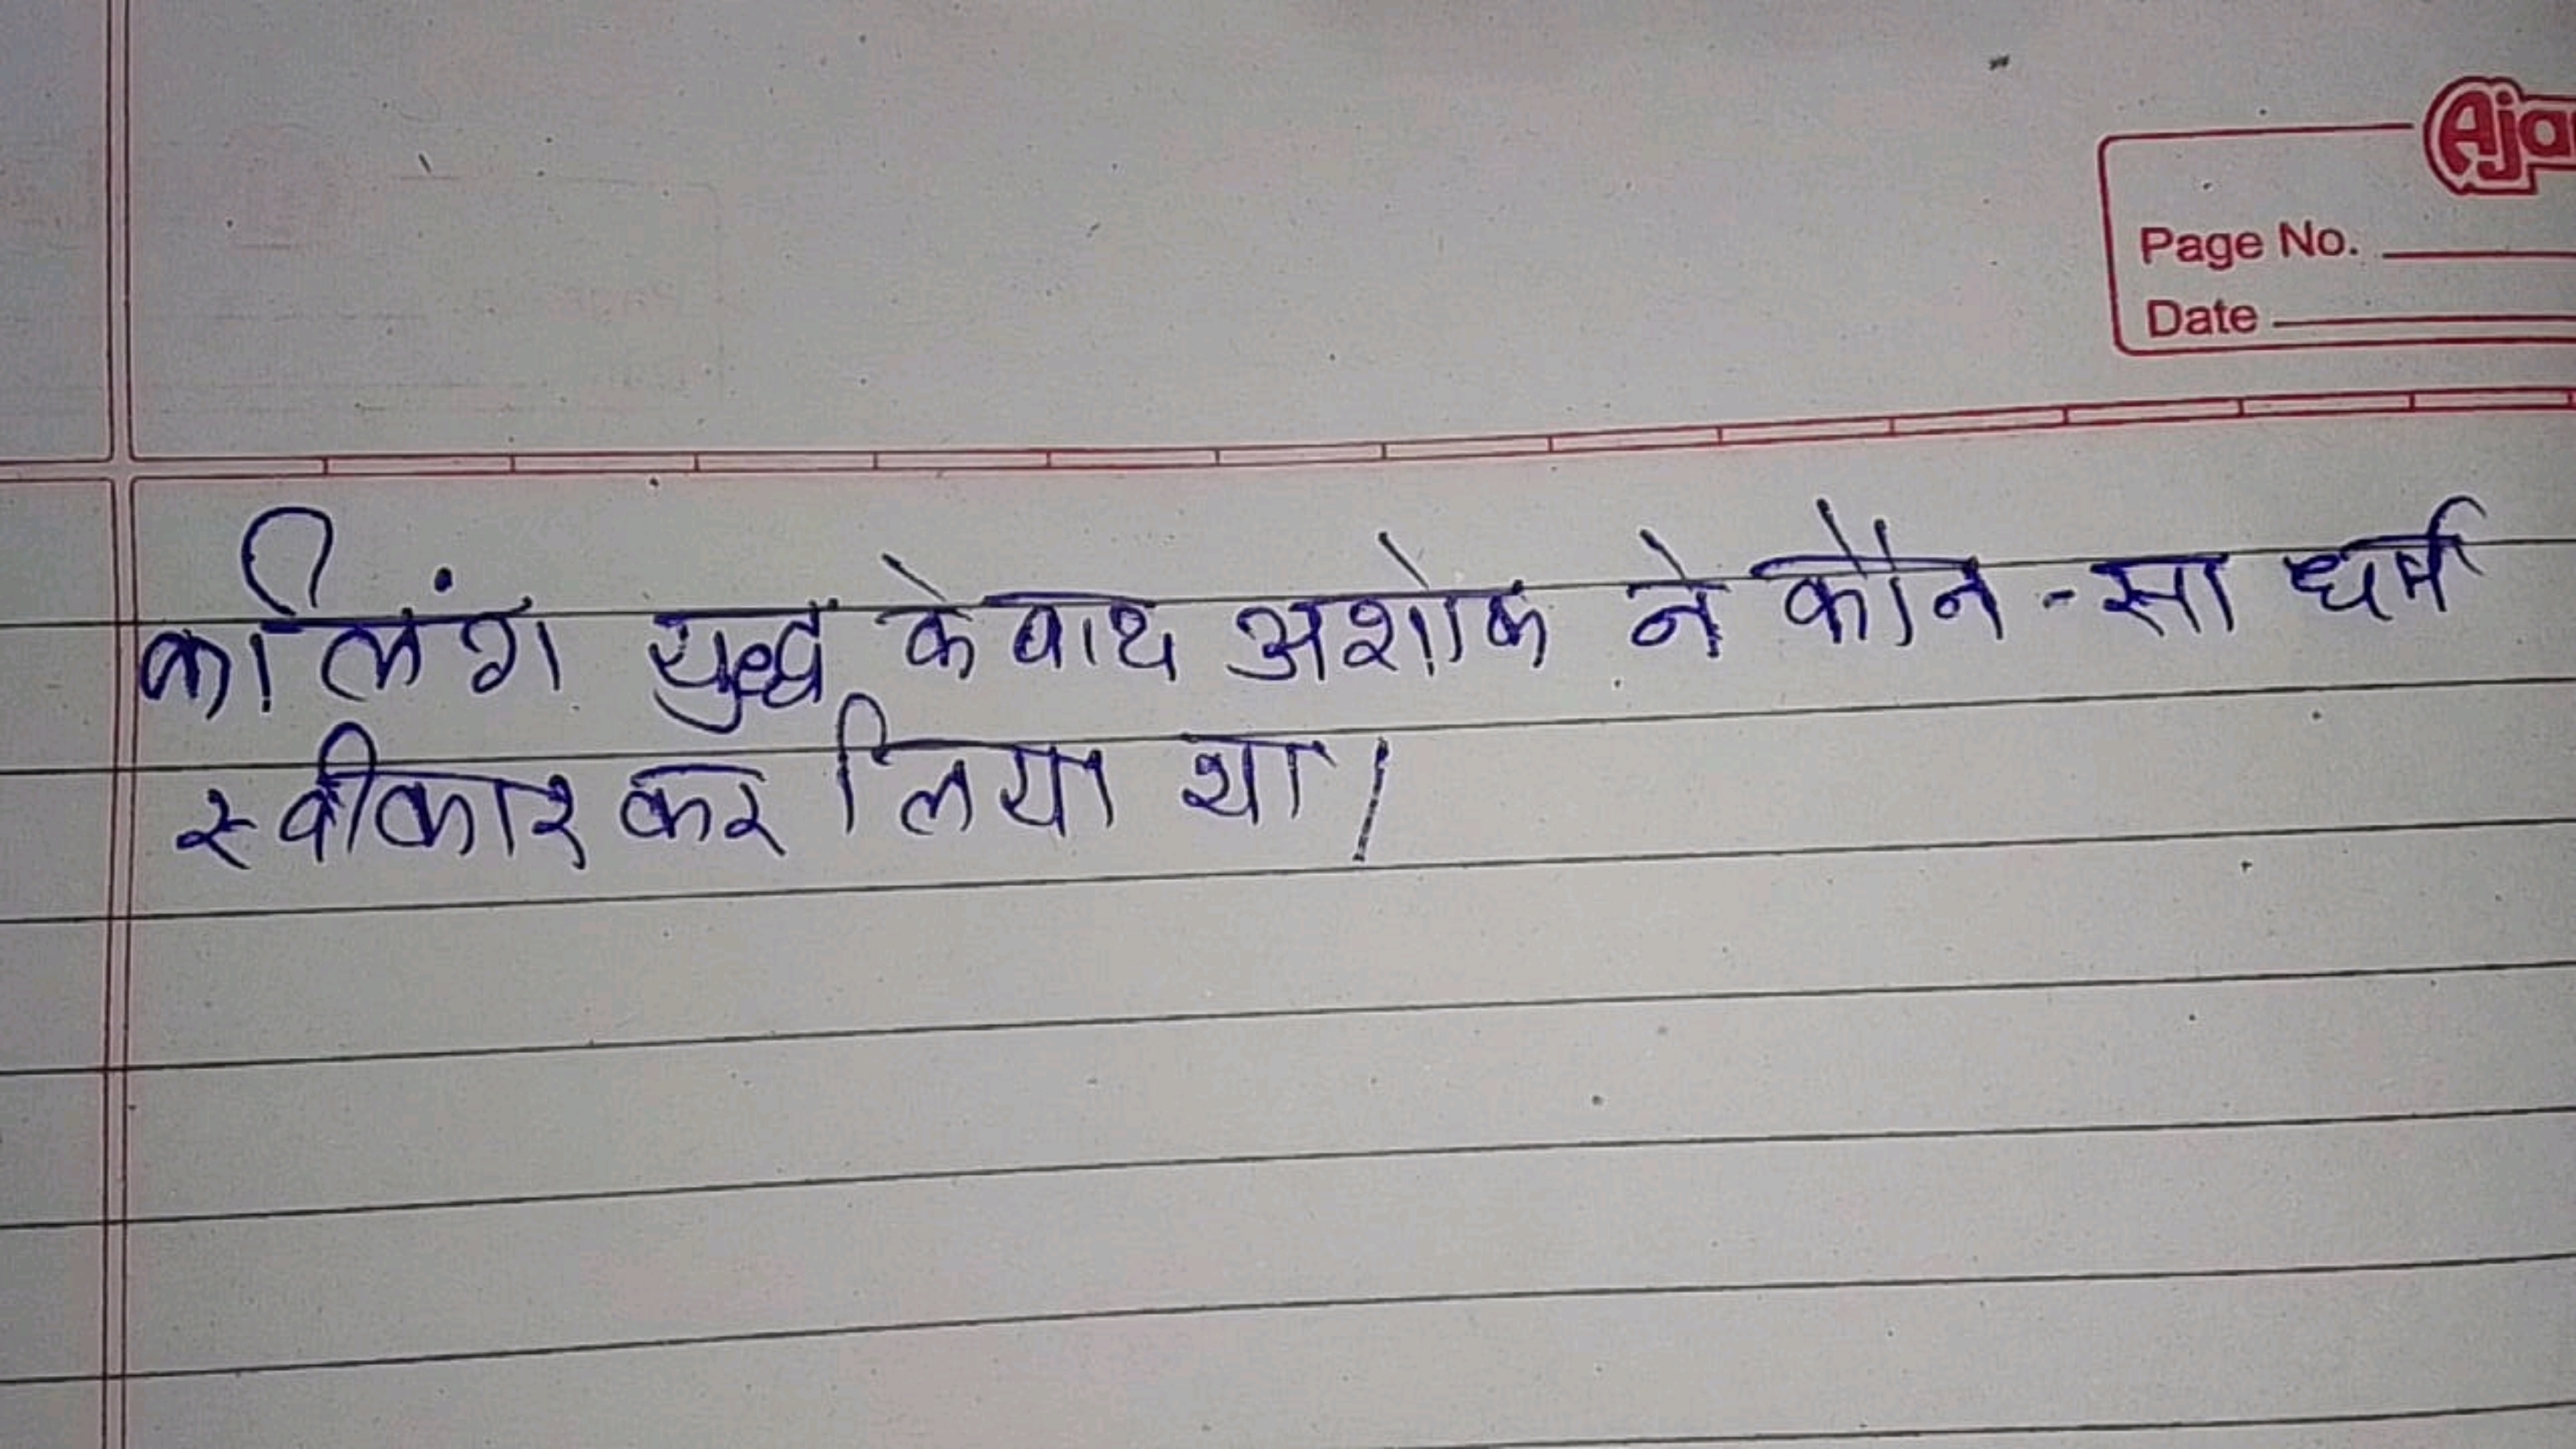 Aja
Page No.
Date
कलिंग युद्ध के बाद अशोक ने कौन-सा धर्म
स्वीकार कर लिया था।